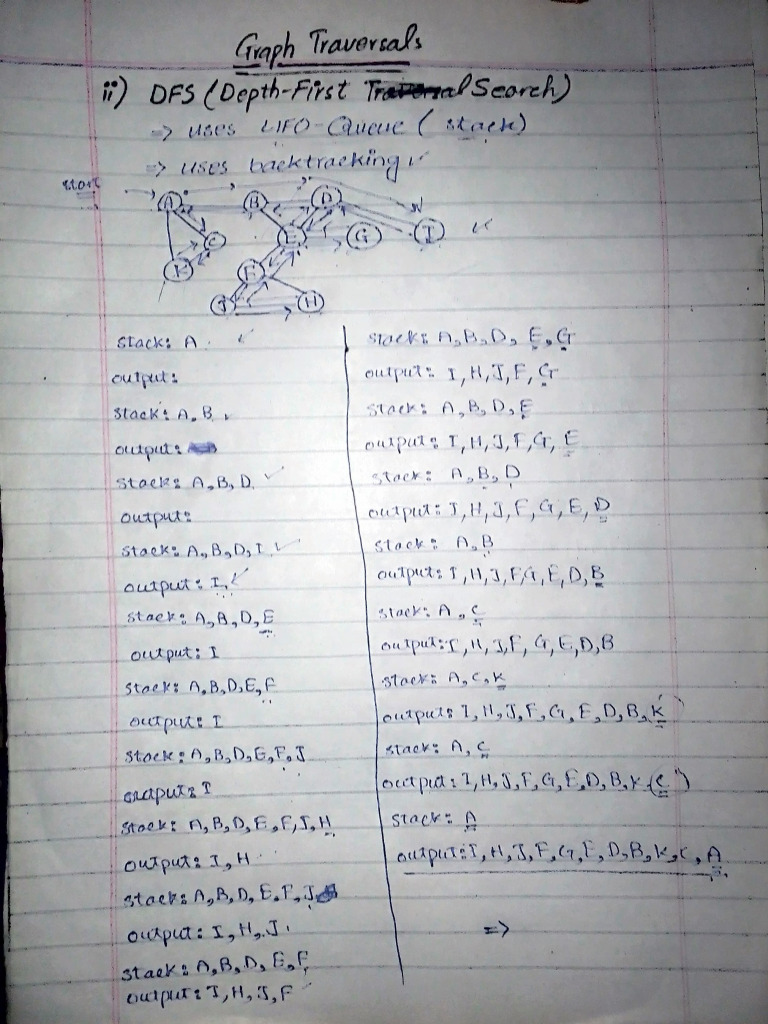 Graph Traversals
ii) DFS (Depth-First Search)
=> uses LIFO-Queue (stack)
=> uses backtracking
start
A B D
C E G I
K F
J H
stack: A
output:
stack: A, B
output:
stack: A, B, D
output:
stack: A, B, D, I
output: I
stack: A, B, D, E
output: I
stack: A, B, D, E, F
output: I
stack: A, B, D, E, F, J
output: I
stack: A, B, D, E, F, J, H
output: I, H
stack: A, B, D, E, F, J
output: I, H, J
stack: A, B, D, E, F
output: I, H, J, F
stack: A, B, D, E, G
output: I, H, J, F, G
stack: A, B, D, E
output: I, H, J, F, G, E
stack: A, B, D
output: I, H, J, F, G, E, D
stack: A, B
output: I, H, J, F, G, E, D, B
stack: A, C
output: I, H, J, F, G, E, D, B
stack: A, C, K
output: I, H, J, F, G, E, D, B, K
stack: A, C
output: I, H, J, F, G, E, D, B, K, C
stack: A
output: I, H, J, F, G, E, D, B, K, C, A
=>